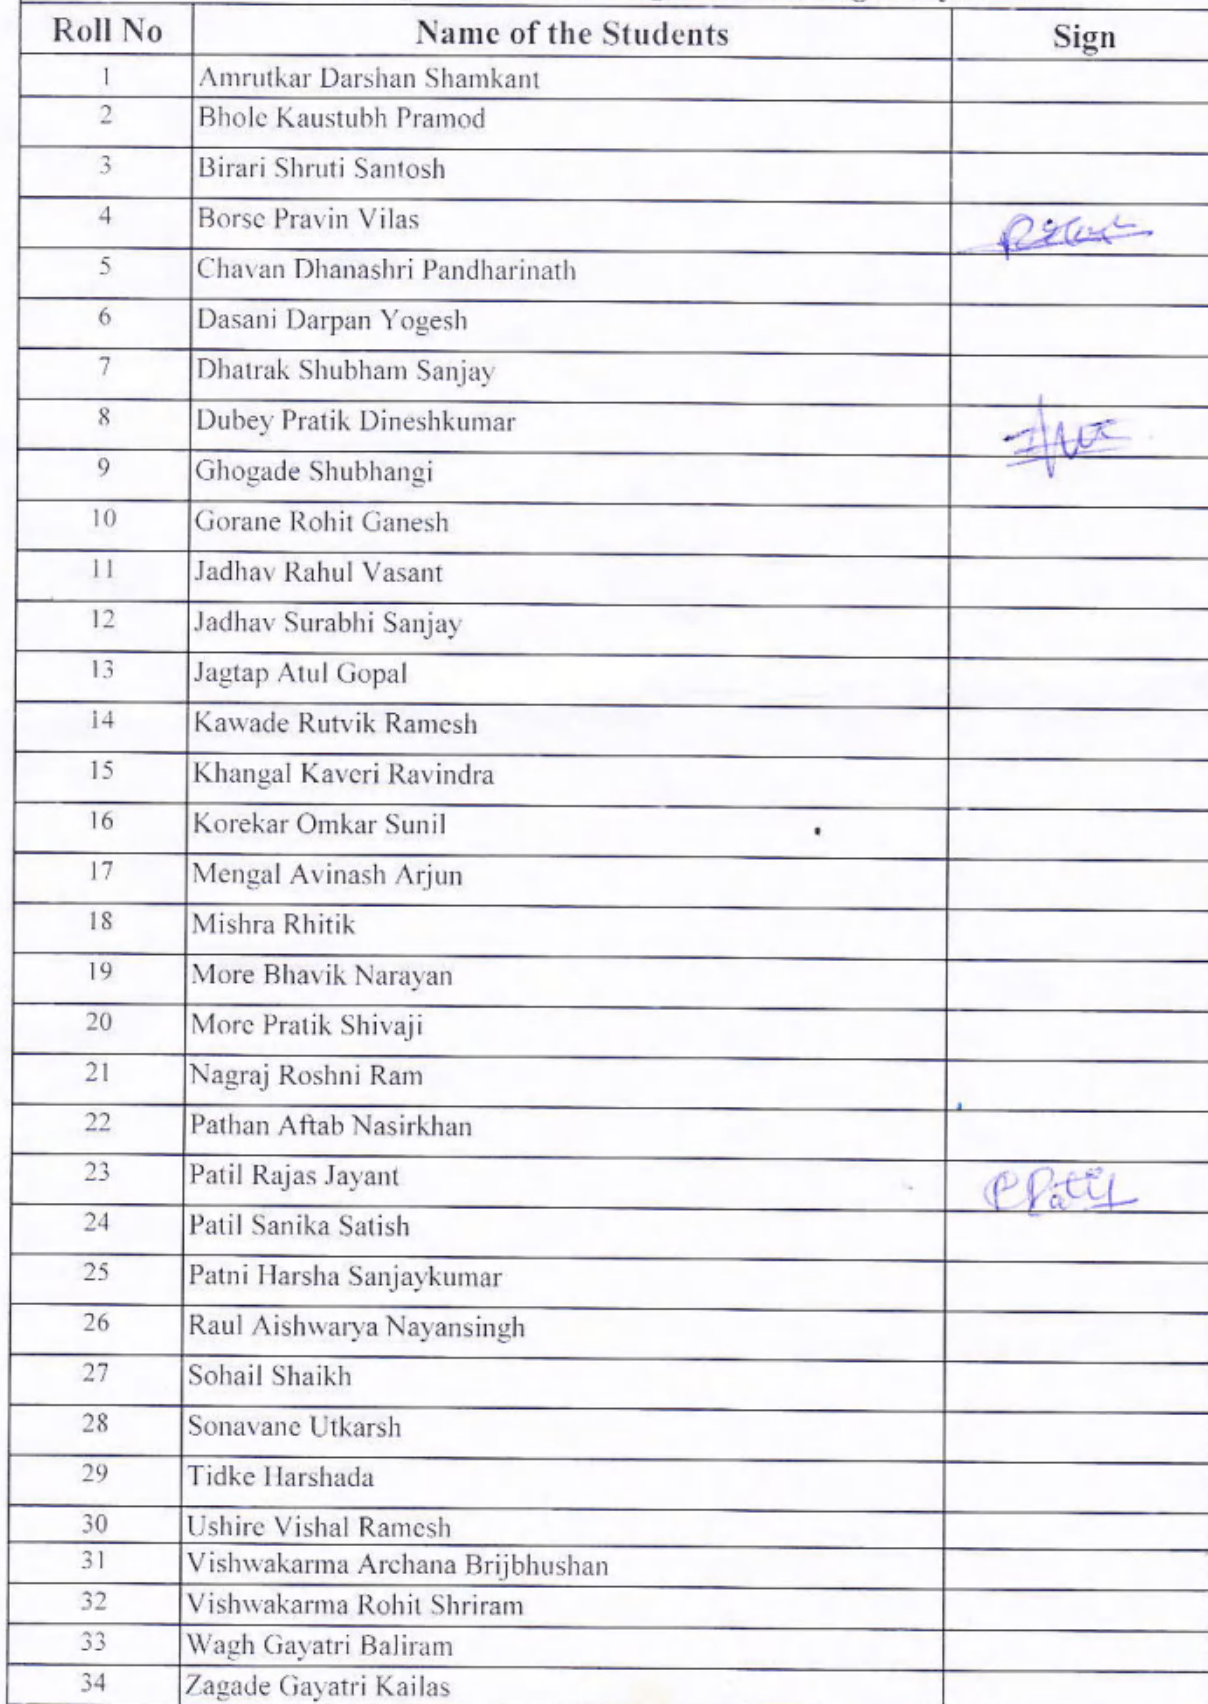 Roll No Name of the Students Sign
1 Amrutkar Darshan Shamkant
2 Bhole Kaustubh Pramod
3 Birari Shruti Santosh
4 Borse Pravin Vilas
5 Chavan Dhanashri Pandharinath
6 Dasani Darpan Yogesh
7 Dhatrak Shubham Sanjay
8 Dubey Pratik Dineshkumar
9 Ghogade Shubhangi
10 Gorane Rohit Ganesh
11 Jadhav Rahul Vasant
12 Jadhav Surabhi Sanjay
13 Jagtap Atul Gopal
14 Kawade Rutvik Ramesh
15 Khangal Kaveri Ravindra
16 Korekar Omkar Sunil
17 Mengal Avinash Arjun
18 Mishra Rhitik
19 More Bhavik Narayan
20 More Pratik Shivaji
21 Nagraj Roshni Ram
22 Pathan Aftab Nasirkhan
23 Patil Rajas Jayant
24 Patil Sanika Satish
25 Patni Harsha Sanjaykumar
26 Raul Aishwarya Nayansingh
27 Sohail Shaikh
28 Sonavane Utkarsh
29 Tidke Harshada
30 Ushire Vishal Ramesh
31 Vishwakarma Archana Brijbhushan
32 Vishwakarma Rohit Shriram
33 Wagh Gayatri Baliram
34 Zagade Gayatri Kailas